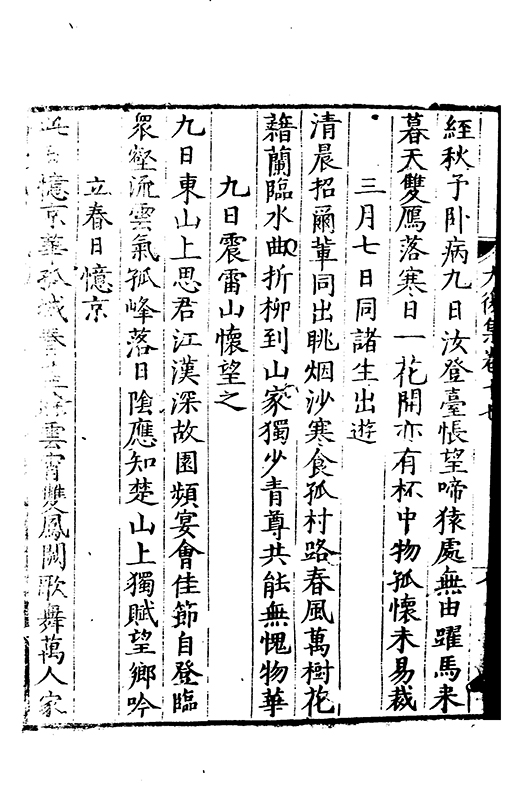 經秋予卧病九日汝登臺悵望啼猿處無由躍馬来
暮天雙鴈落寒日一花開亦有杯中物孤懷未易裁
三月七日同諸生出遊
清晨招爾輩同出眺烟沙寒食孤村路春風萬樹花
藉蘭臨水曲折柳到山家獨少青尊共能無愧物華
九日震雷山懷望之
九日東山上思君江漢深故園頻宴會佳節自登臨
衆壑流雲氣孤峰落日隂應知楚山上獨賦望鄉吟
立春日憶京
日憶京華孤城雲霄雙鳳闕歌舞萬人家
大復集卷十七